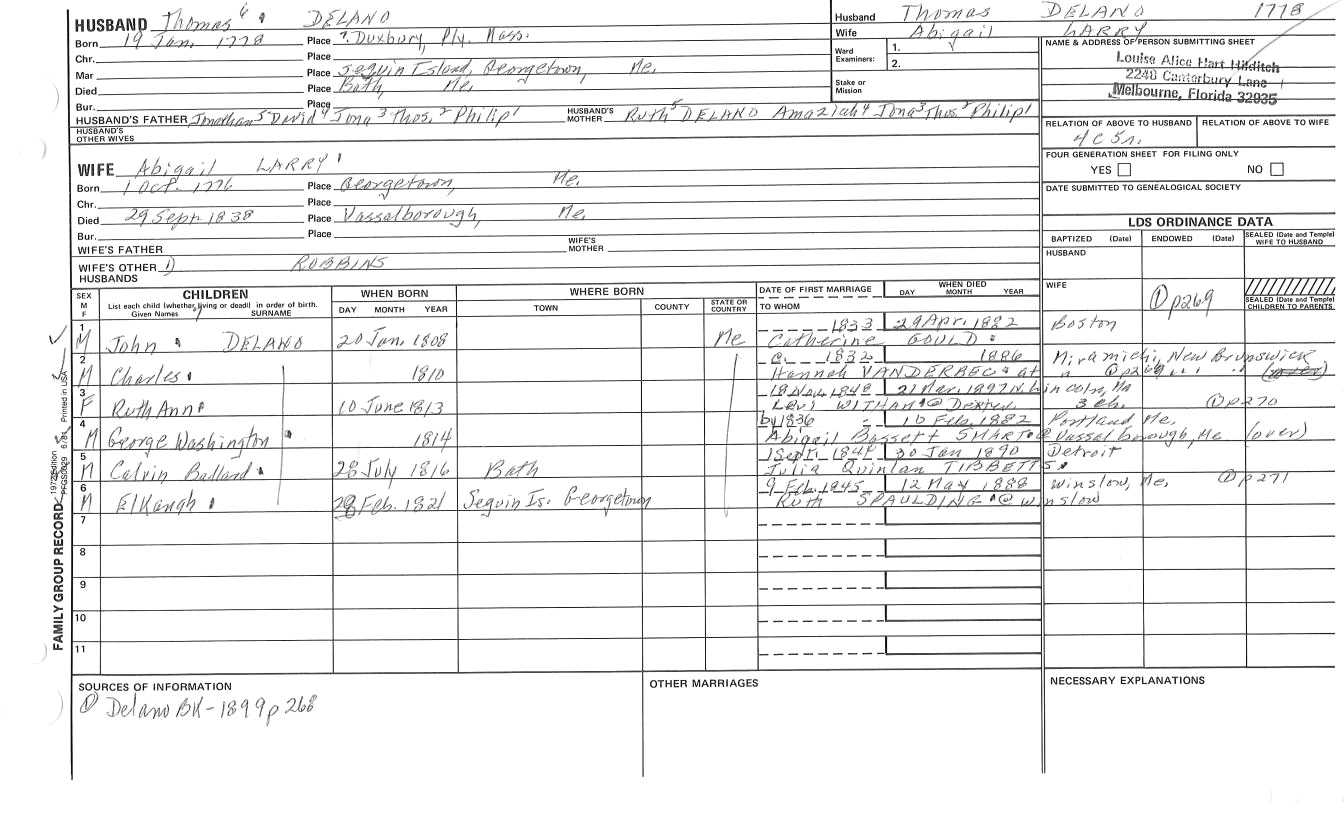 HUSBAND Thomas⁶ DELANO
Born 19 Jan. 1778 Place ?. Duxbury, Ply. Mass.
Chr. Place
Mar Place Seguin Island, Georgetown, Me.
Died Place Bath, Me.
Bur. Place
HUSBAND'S FATHER Jonathan⁵ David⁴ Jona³ Thos.² Philip¹ HUSBAND'S MOTHER Ruth⁵ DELANO Amaziah⁴ Jona³ Thos.² Philip¹
HUSBAND'S OTHER WIVES
WIFE Abigail LARRY
Born 1 Oct. 1776 Place Georgetown, Me.
Chr. Place
Died 29 Sept. 1838 Place Vassalborough, Me.
Bur. Place
WIFE'S FATHER WIFE'S MOTHER
WIFE'S OTHER HUSBANDS 1) ROBBINS
Husband Thomas DELANO 1778
Wife Abigail LARRY
Ward Examiners: 1.
2.
Stake or Mission
NAME & ADDRESS OF PERSON SUBMITTING SHEET
Louise Alice Hart Hilditch
2240 Canterbury Lane
Melbourne, Florida 32935
RELATION OF ABOVE TO HUSBAND RELATION OF ABOVE TO WIFE
4C5r.
FOUR GENERATION SHEET FOR FILING ONLY
YES NO
DATE SUBMITTED TO GENEALOGICAL SOCIETY
LDS ORDINANCE DATA
BAPTIZED (Date) ENDOWED (Date) SEALED (Date and Temple) WIFE TO HUSBAND
HUSBAND
WIFE ① p269
SEALED (Date and Temple) CHILDREN TO PARENTS
SEX M F CHILDREN WHEN BORN WHERE BORN DATE OF FIRST MARRIAGE WHEN DIED
List each child (whether living or dead) in order of birth.
Given Names SURNAME DAY MONTH YEAR TOWN COUNTY STATE OR COUNTRY TO WHOM DAY MONTH YEAR
1 1833 29 Apr. 1882 Boston
M John DELANO 20 Jan. 1808 Me Catherine GOULD
2 c. 1832 1886 Miramichi, New Brunswick
M Charles 1810 Hannah VANDERBEC at ① p269 (over)
3 18 Nov. 1848 21 Mar. 1897 N. Lincoln, Me
F Ruth Ann 10 June 1813 Levi WITHAM @ Dexter 3 ch. ① p270
4 by 1836 10 Feb. 1882 Portland, Me.
M George Washington 1814 Abigail Bassett SMART @ Vassalborough, Me (over)
5 1 Sept. 1844 30 Jan 1890 Detroit
M Calvin Ballard 28 July 1816 Bath Julia Quinlan TIBBETTS
6 9 Feb. 1845 12 May 1888 Winslow, Me. ① p271
M Elkanah 28 Feb. 1821 Seguin Is. Georgetown Ruth SPAULDING @ Winslow
7
8
9
10
11
SOURCES OF INFORMATION
① Delano BK - 1899 p 268
OTHER MARRIAGES
NECESSARY EXPLANATIONS
FAMILY GROUP RECORD
Printed in USA